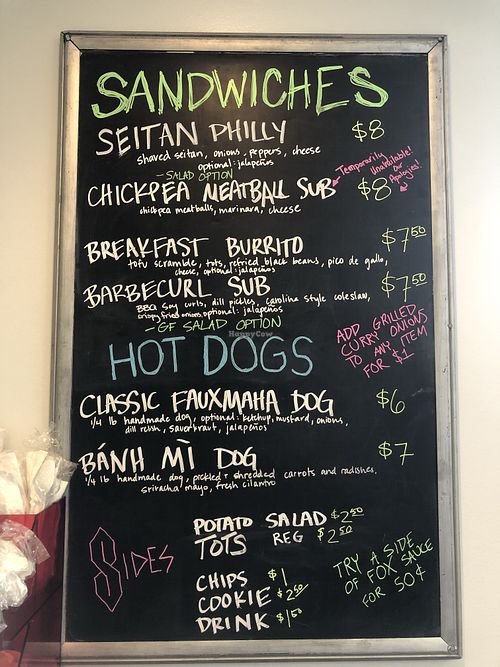 SANDWICHES
SEITAN PHILLY $8
shaved seitan, onions, peppers, cheese
optional: jalapeños
- SALAD OPTION
Temporarily Unavailable!
Our Apologies!
CHICKPEA NEATBALL SUB $8
chickpea meatballs, marinara, cheese
BREAKFAST BURRITO $7.50
tofu scramble, tots, refried black beans, pico de gallo,
cheese, optional: jalapeños
BARBECURL SUB $7.50
BBQ soy curls, dill pickles, carolina style coleslaw,
crispy fried onions, optional: jalapeños
- GF SALAD OPTION
ADD GRILLED
CURRY ONIONS
TO ANY ITEM
FOR $1
HappyCow
HOT DOGS
CLASSIC FAUXMAHA DOG $6
1/4 lb handmade dog, optional: ketchup, mustard, onions,
dill relish, sauerkraut, jalapeños
BÁNH MÌ DOG $7
1/4 lb handmade dog, pickled + shredded carrots and radishes,
sriracha mayo, fresh cilantro
SIDES
POTATO SALAD $2.50
TOTS REG $2.50
CHIPS $1
COOKIE $2.50
DRINK $1.50
TRY A SIDE
OF FOX SAUCE
FOR 50¢